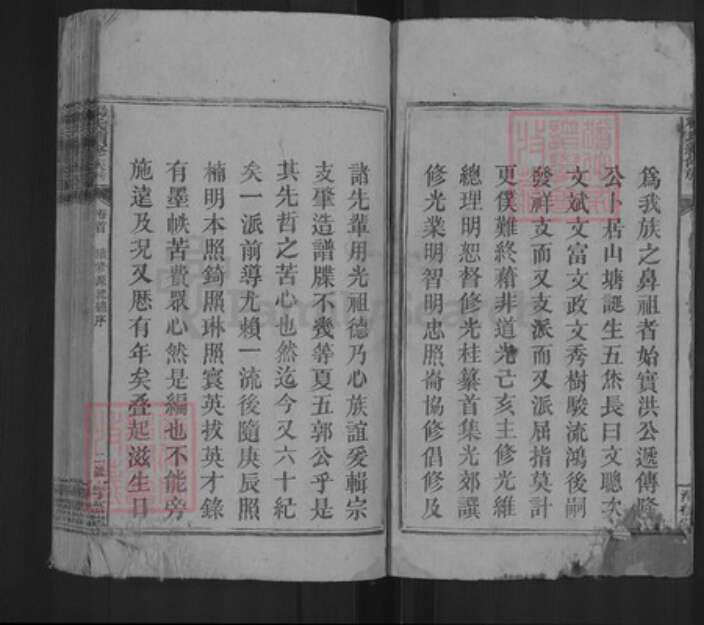 為我族之鼻祖者始實洪公遞傳隆
公卜居山塘誕生五烋長曰文聰次
文斌文富文政文秀樹駿流鴻後嗣
發祥支而又支派而又派屈指莫計
更僕難終藉非道光亡亥主修光維
總理明恕督修光桂纂首集光郊譔
修光業明智明忠照崙協修倡修及
諸先輩用光祖德乃心族誼爰輯宗
支肇造譜牒不幾等夏五郭公乎是
其先哲之苦心也然迄今又六十紀
矣一派前導尤賴一流後隨庚辰照
楠明本照錡照琳照寰英拔英才錄
有墨帙苦費眾心然是編也不能旁
施達及況又厯有年矣叠起滋生日
卷首